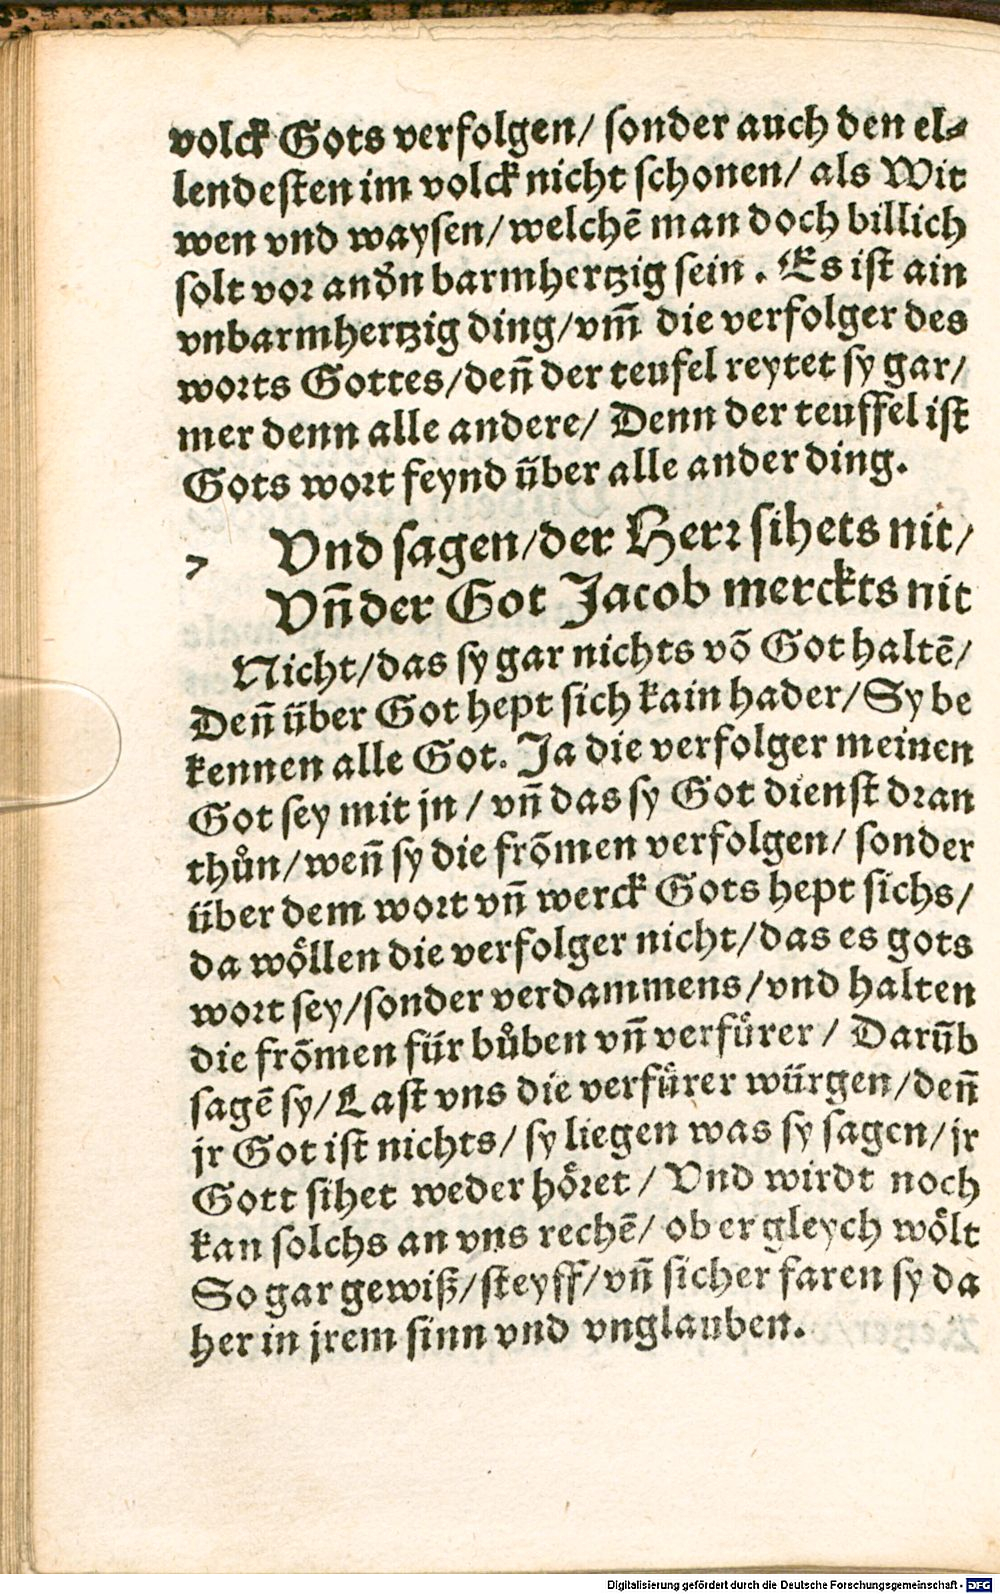 volck Gots verfolgen/ sonder auch den el⸗
lendesten im volck nicht schonen/ als Wit
wen vnd waysen/ welchẽ man doch billich
solt vor andn̄ barmhertzig sein. Es ist ain
vnbarmhertzig ding/ vm̄ die verfolger des
worts Gottes/ den̄ der teufel reytet sy gar/
mer denn alle andere/ Denn der teuffel ist
Gots wort feynd über alle ander ding.
7 Vnd sagen/ der Herr sihets nit/
Vn̄ der Got Jacob merckts nit
Nicht/ das sy gar nichts võ Got haltẽ/
Den̄ über Got hept sich kain hader/ Sy be
kennen alle Got. Ja die verfolger meinen
Got sey mit jn/ vn̄ das sy Got dienst dran
thůn/ wen̄ sy die frõmen verfolgen/ sonder
über dem wort vn̄ werck Gots hept sichs/
da woͤllen die verfolger nicht/ das es gots
wort sey/ sonder verdammens/ vnd halten
die frõmen für bůben vn̄ verfuͤrer/ Darũb
sagẽ sy/ Last vns die verfuͤrer würgen/ den̄
jr Got ist nichts/ sy liegen was sy sagen/ jr
Gott sihet weder hoͤret/ Vnd wirdt noch
kan solchs an vns rechẽ/ ob er gleych woͤlt
So gar gewiß/ steyff/ vn̄ sicher faren sy da
her in jrem sinn vnd vnglauben.
Digitalisierung gefördert durch die Deutsche Forschungsgemeinschaft - DFG